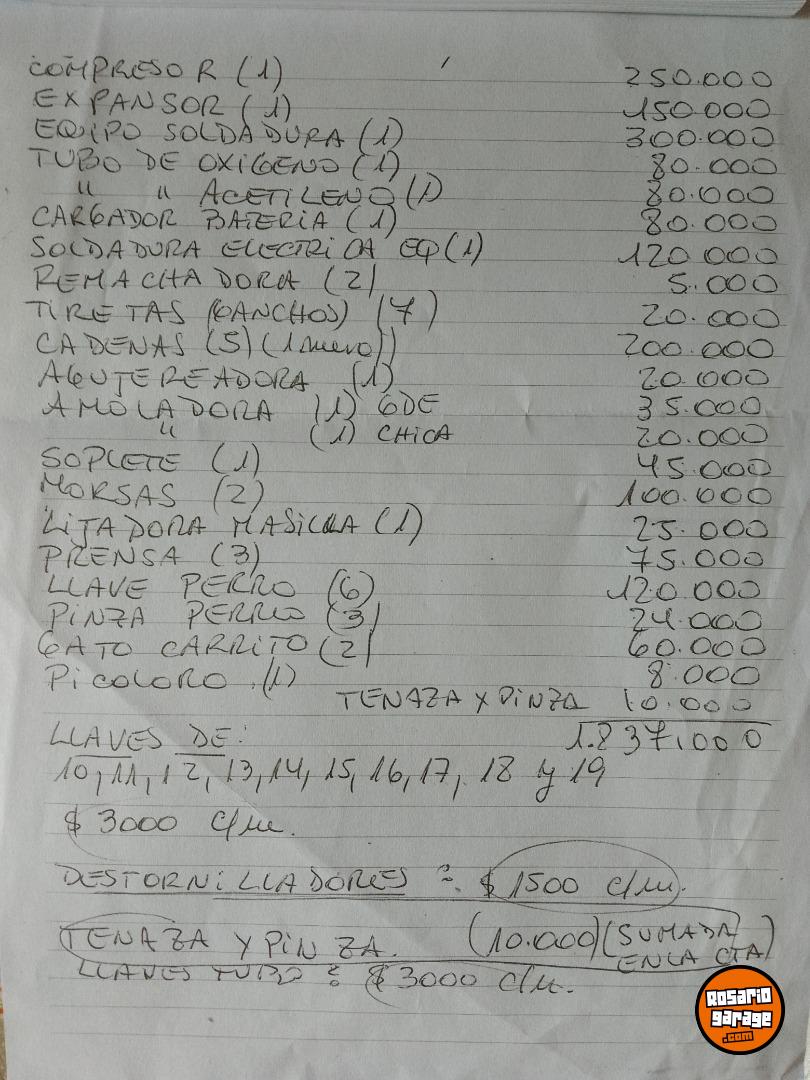 COMPRESOR (1) 250.000
EXPANSOR (1) 150.000
EQUIPO SOLDADURA (1) 300.000
TUBO DE OXIGENO (1) 80.000
" " ACETILENO (1) 80.000
CARGADOR BATERIA (1) 80.000
SOLDADURA ELECTRICA EQ (1) 120.000
REMACHADORA (2) 5.000
TIRETAS (GANCHOS) (7) 20.000
CADENAS (5) (1 nuevo) 200.000
AGUJEREADORA (1) 20.000
AMOLADORA (1) GDE 35.000
" (1) CHICA 20.000
SOPLETE (1) 45.000
MORSAS (2) 100.000
LIJADORA MASILLA (1) 25.000
PRENSA (3) 75.000
LLAVE PERRO (6) 120.000
PINZA PERRO (3) 24.000
GATO CARRITO (2) 60.000
PICOLORO (1) 8.000
TENAZA Y PINZA 10.000
1.837.000
LLAVES DE:
10, 11, 12, 13, 14, 15, 16, 17, 18 y 19
$ 3000 c/u.
DESTORNILLADORES : $ 1500 c/u.
TENAZA Y PINZA. (10.000) (SUMADA
EN LA CTA)
LLAVES TUBO : $ 3000 c/u.
Rosario
garage
.com